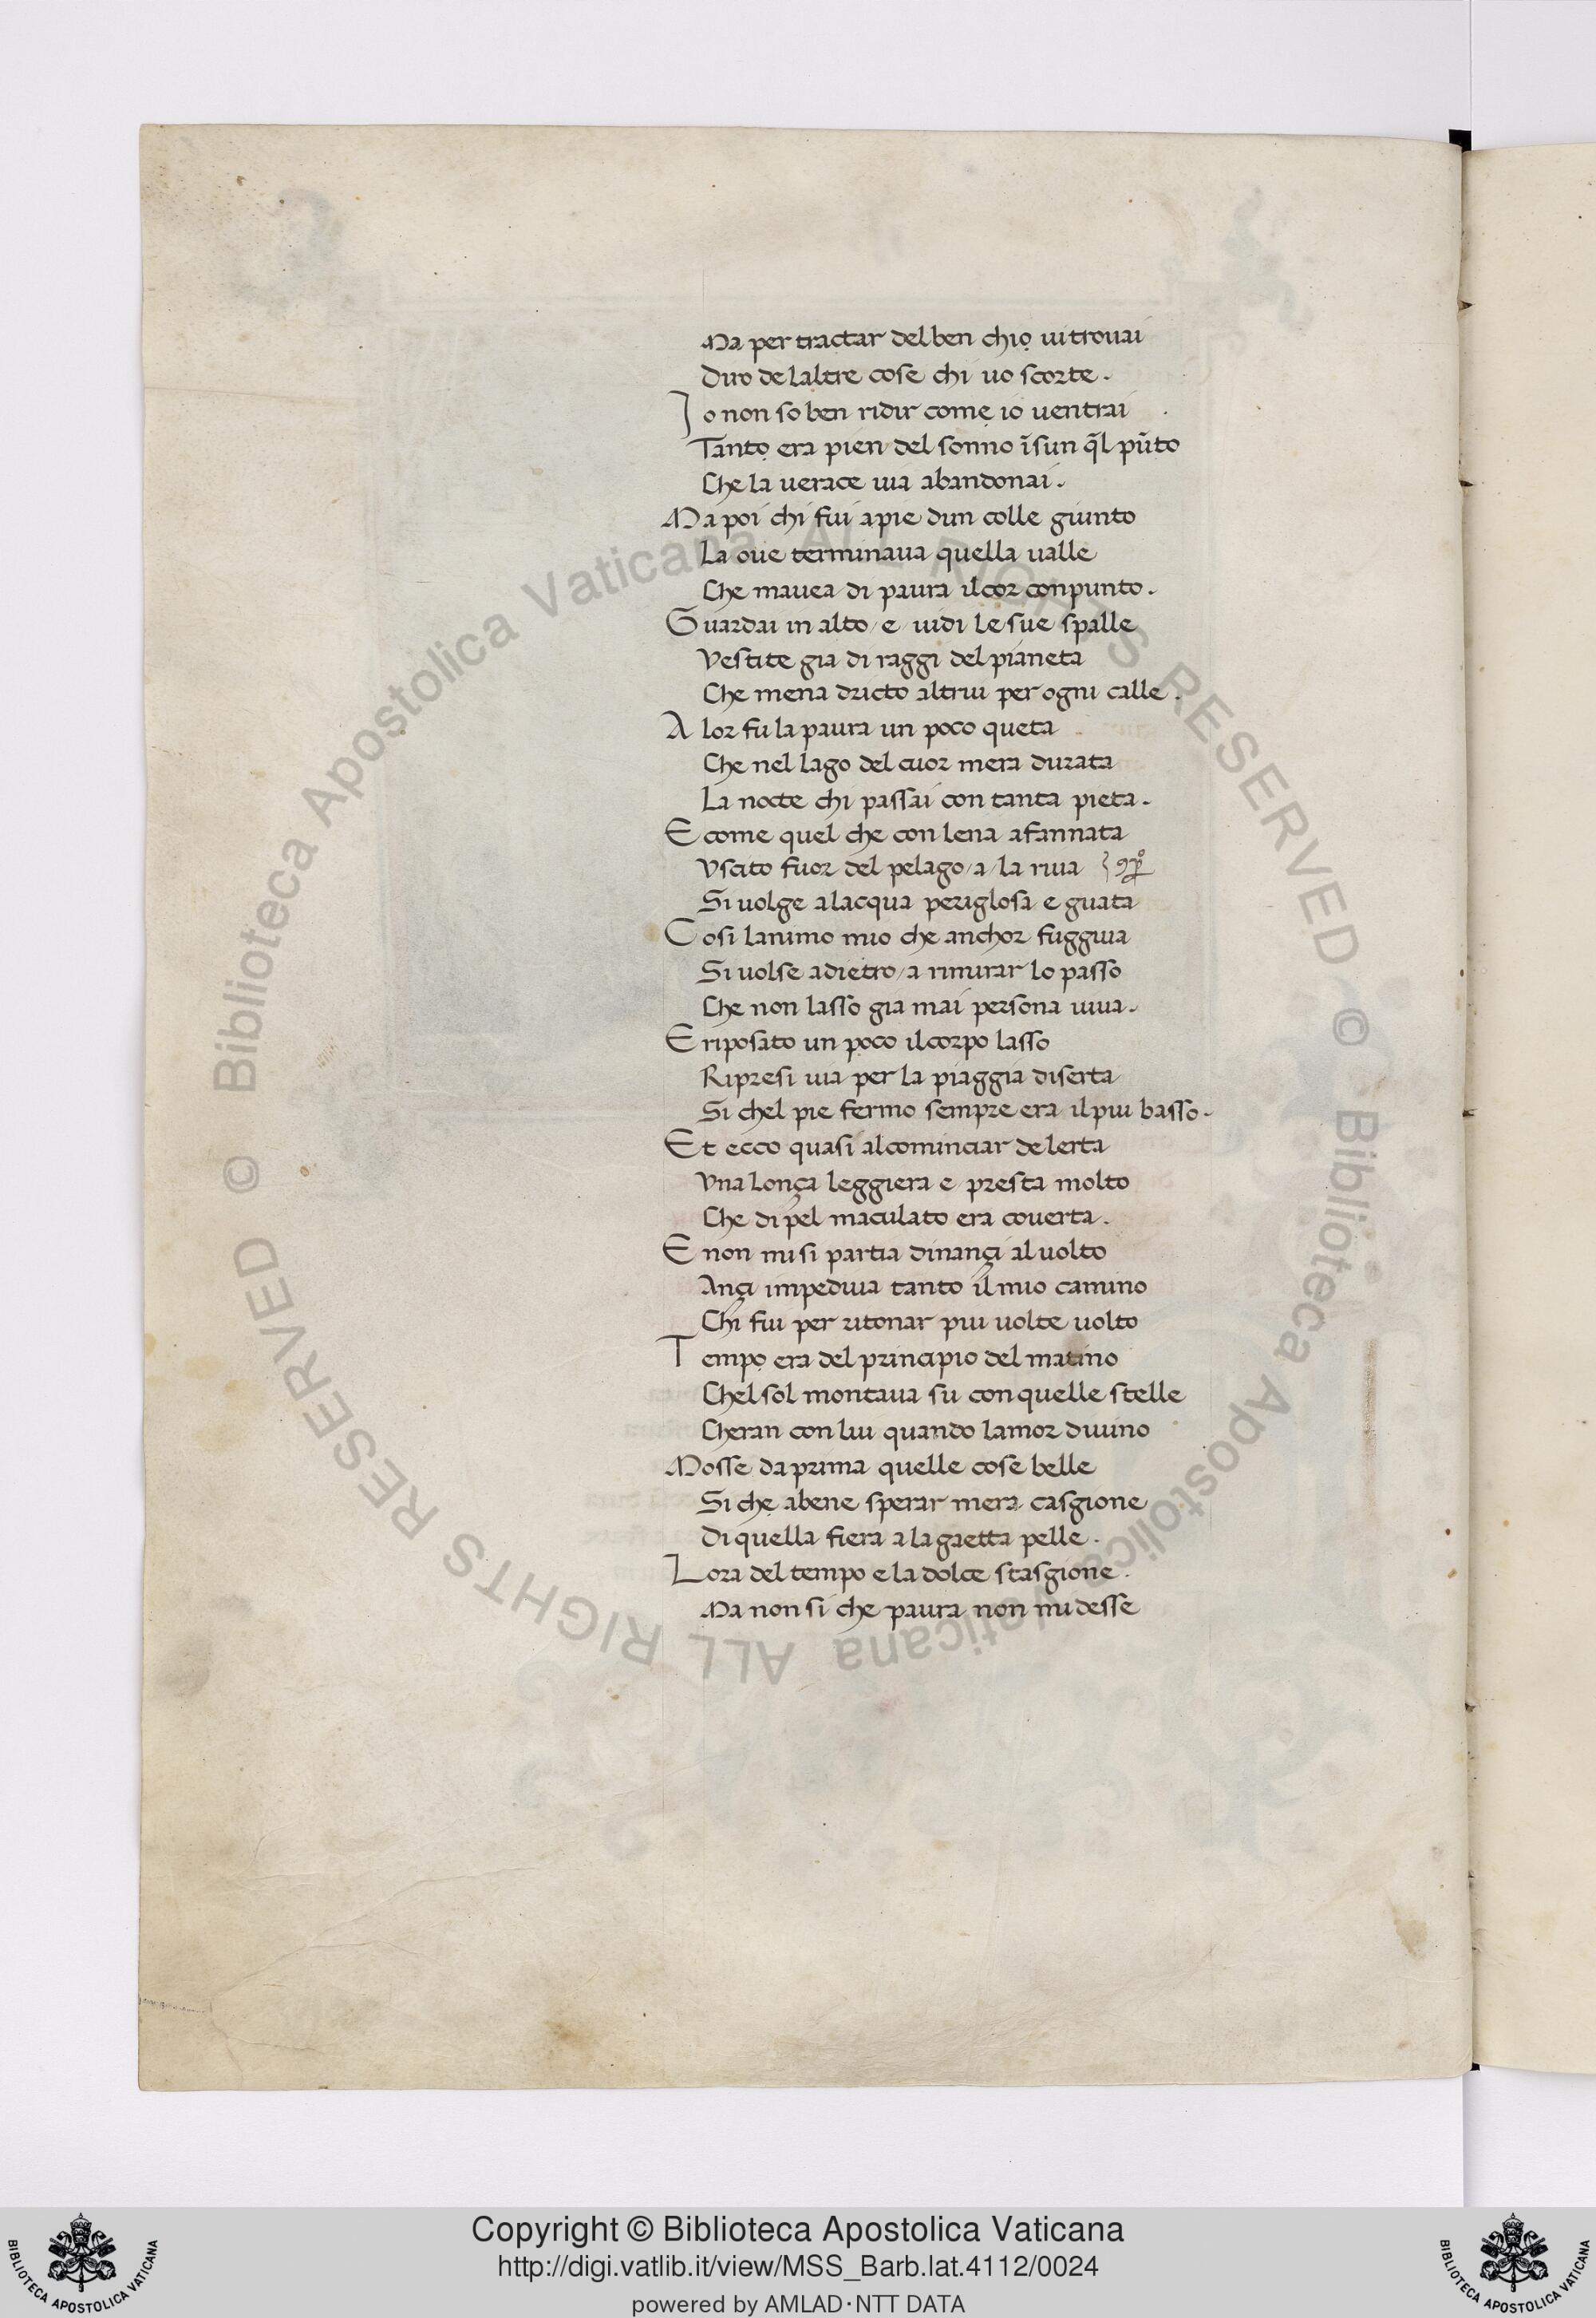 Ma per tractar del ben chio ui trouai
Diro de laltre cose chi uo scorte.
Io non so ben ridir come io uentrai
Tanto era pien del sonno ĩ sun q̃l pũto
Che la uerace uia abandonai.
Ma poi chi fui apie dun colle giunto
La oue terminaua quella ualle
Che mauea di paura il cor conpunto.
Guardai in alto / e uidi le sue spalle
Vestite gia di raggi del pianeta
Che mena dricto altrui per ogni calle.
A lor fu la paura un poco queta
Che nel lago del cuor mera durata
La nocte chi passai con tanta pieta.
E come quel che con lena afannata
Vscito fuor del pelago / a la riua
Si uolge alacqua periglosa e guata
Cosi lanimo mio che anchor fuggiua
Si uolse adietro / a rimirar lo passo
Che non lasso gia mai persona uiua.
E riposato un poco il corpo lasso
Ripresi uia per la piaggia diserta
Si chel pie fermo sempre era il piu basso.
Et ecco quasi al cominciar de lerta
Vna lonça leggiera e presta molto
Che di pel maculato era couerta.
E non mi si partia dinançi al uolto
Ançi impediua tanto il mio camino
Chi fui per ritonar piu uolte uolto
Tempo era del principio del matino
Chel sol montaua su con quelle stelle
Cheran con lui quando lamor diuino
Mosse da prima quelle cose belle
Si che abene sperar mera casgione
Di quella fiera a la gaetta pelle.
Lora del tempo e la dolce stasgione.
Ma non si che paura non mi desse
© Biblioteca Apostolica Vaticana ALL RIGHTS RESERVED © Biblioteca Apostolica Vaticana ALL RIGHTS RESERVED
Copyright © Biblioteca Apostolica Vaticana
http://digi.vatlib.it/view/MSS_Barb.lat.4112/0024
powered by AMLAD·NTT DATA
BIBLIOTECA APOSTOLICA VATICANA
BIBLIOTECA APOSTOLICA VATICANA